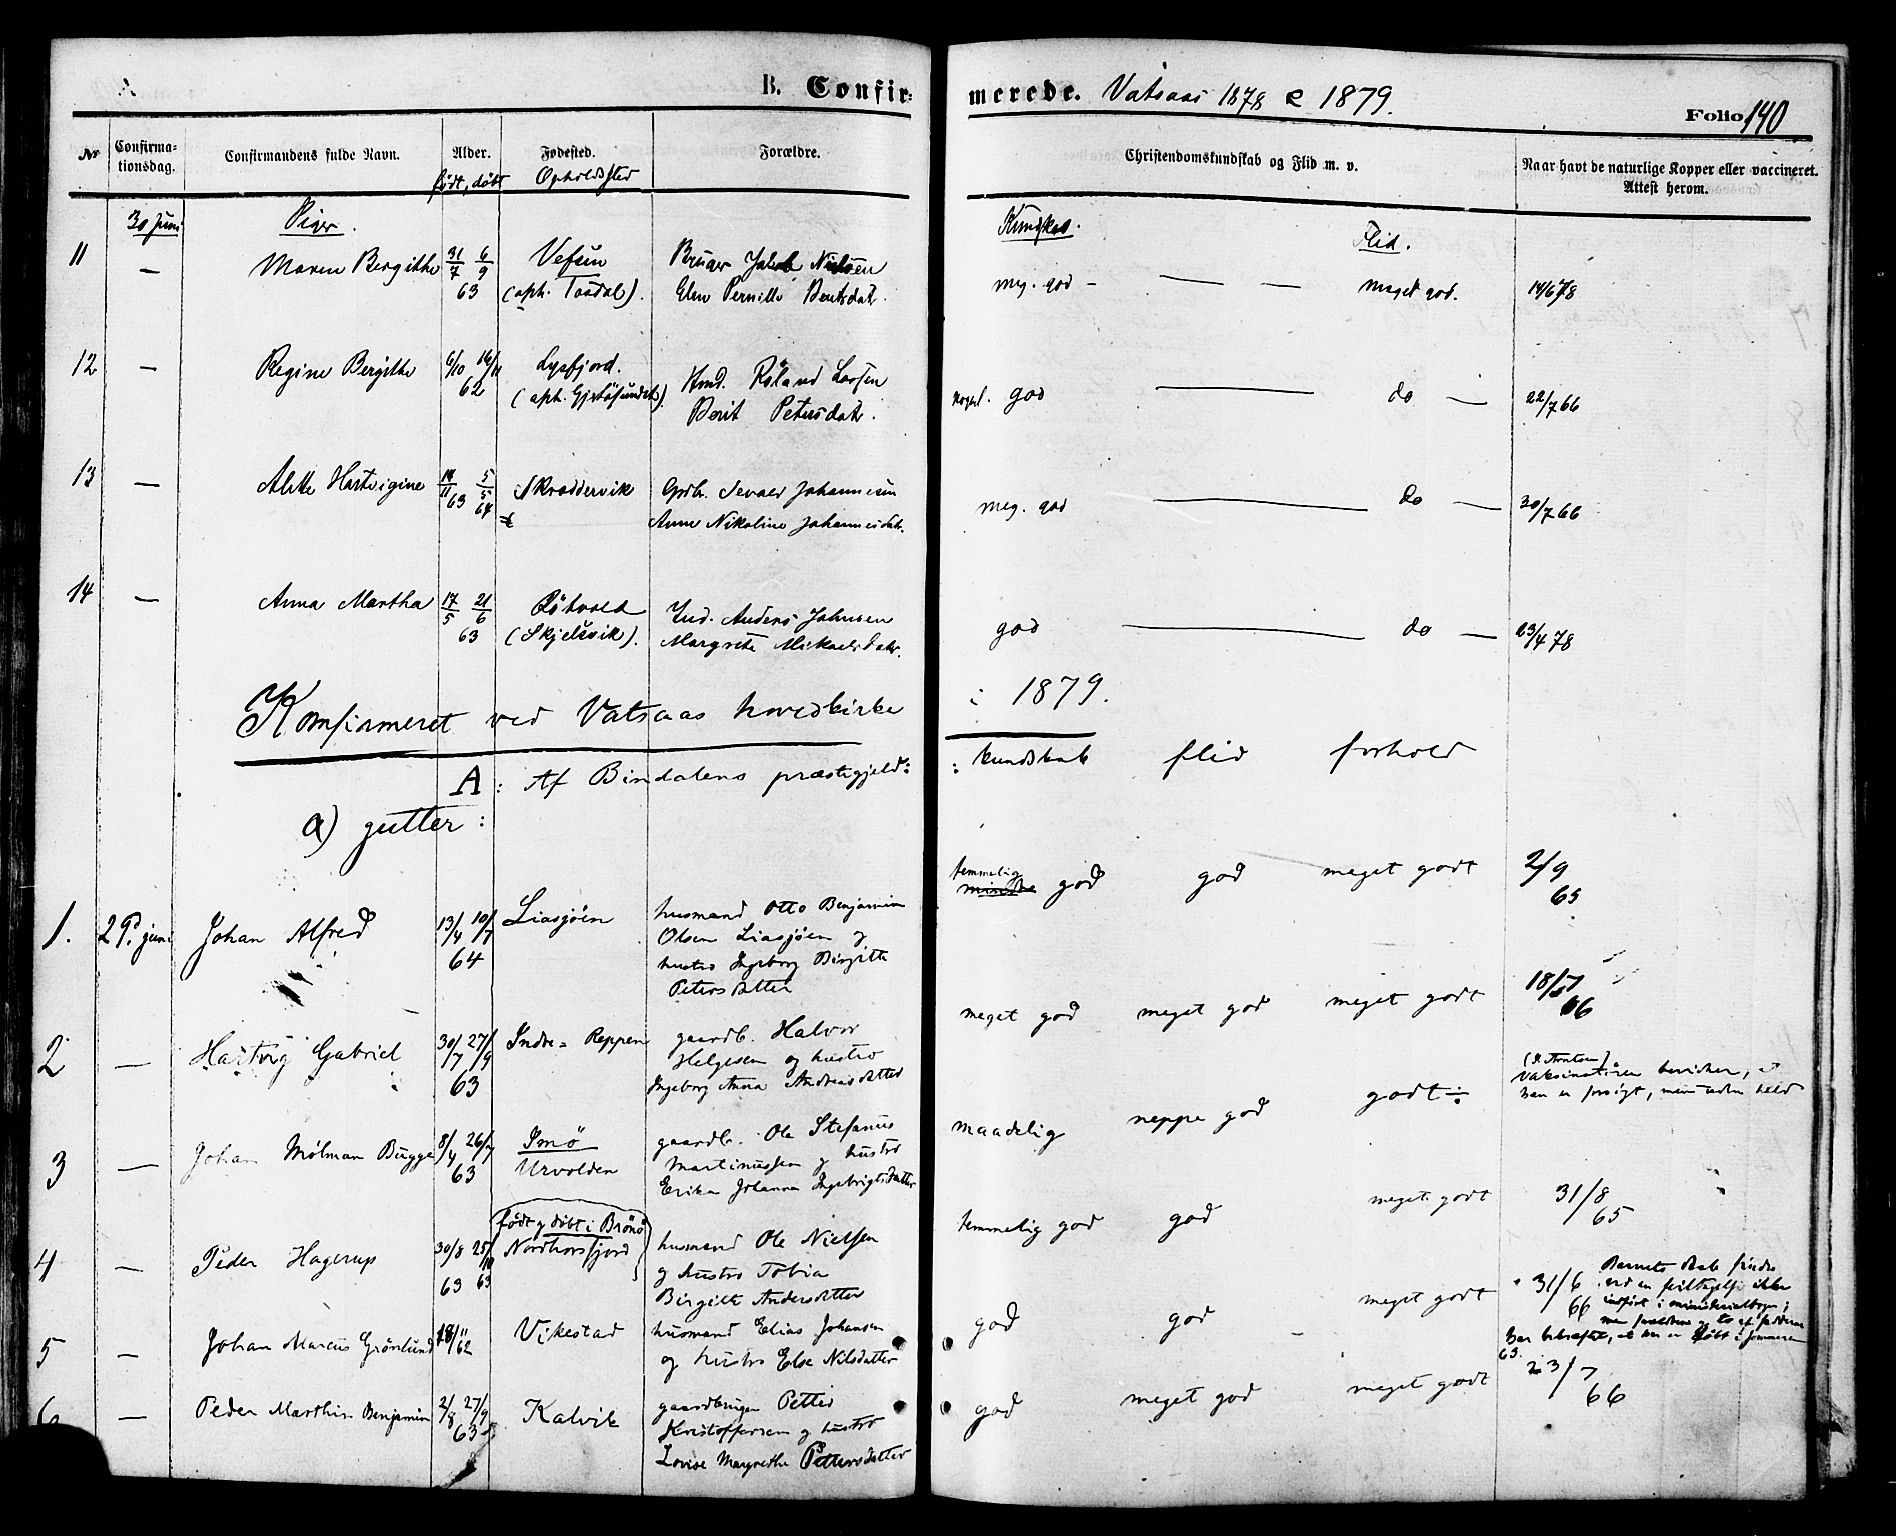 B. Confirmerede. Vatsaas 1878 & 1879.
Folio 140
No
Confirmationsdag.
Confirmandens fulde Navn.
Alder.
født, døbt
Fødested.
Opholdssted
Forældre.
Christendomskundskab og Flid m. v.
Naar havt de naturlige Kopper eller vaccineret.
Attest herom.
30 Juni
Piger.
Kundskab.
Flid.
11 — Maren Bergithe 31/7 6/9 63 Vefsn
(oph. Tosdal).
Bruger Jakob Nielsen
Elen Pernille Bentsdatr.
meg. god — — — meget god. 14/6 78
12 — Regine Bergithe 6/10 16/11 62 Lysfjord.
Hmd. Røland Larsen
Berit Petersdatr.
god — do — 22/7 66
13 — Alette Hartvigine 14/11 63 5/5 64 Skroddervik
Gdb. Sevald Johannesen
Anne Nikoline Johannesdatr.
meg. god — do — 30/7 66
14 — Anna Martha 17/5 21/6 63
(Skjelsvik).
Ind. Anders Johnsen
Margrete Mikaelsdatr.
god — do — 23/4 78
Konfirmeret ved Vatsaas hovedkirke i 1879.
A: Af Bindalens præstegjeld:
: kundskab flid forhold
a) gutter:
1. 29. juni Johan Alfred 13/4 10/7 64 Liasjøen
husmand Otto Benjamin
Olsen Liasjøen og
hustro Ingeborg Birgitte
Petersdatter
temmelig
mindre god god meget godt 2/9 65
2 — Hartvig Gabriel 30/7 27/9 63 Indre=Reppen
gaardb. Halvor
Helgesen og hustro
Ingeborg Anna Andreasdatter
meget god meget god meget godt 18/7 66
3 — Johan Mølman Bugge 8/4 26/7 63 Imø
Urvolden
gaardb. Ole Stefanus
Martinussen og hustro
Erika Johanna Ingebrigtsdatter
maadelig neppe god godt÷
Vaksinatøren bevidner, at
han er forsøgt, men uden held
4 — Peder Hagerup 30/8 63 25/10 63
født og døbt i Brønø
Nordhorsfjord
husmand Ole Nielsen
og hustro Tobia
Birgitte Andersdatter
temmelig god god meget godt 31/8 65
5 — Johan Marcus Grønlund 18/11 62 Vikestad
husmand Elias Johansen
og hustro Else Nilsdatter
god god meget godt 31/6 66
Barnets daab findes
ved en feiltagelse ikke
indført i ministerialbogen;
men forældrene og to af fadderne
har bekræftet, at han er døbt i sommeren
63.
6 — Peder Marthin Benjamin 2/8 27/9 63 Kalvik
gaardbruger Petter
Kristoffersen og hustro
Lovise Margrethe Pettersdatter
god meget god meget godt 23/7 66